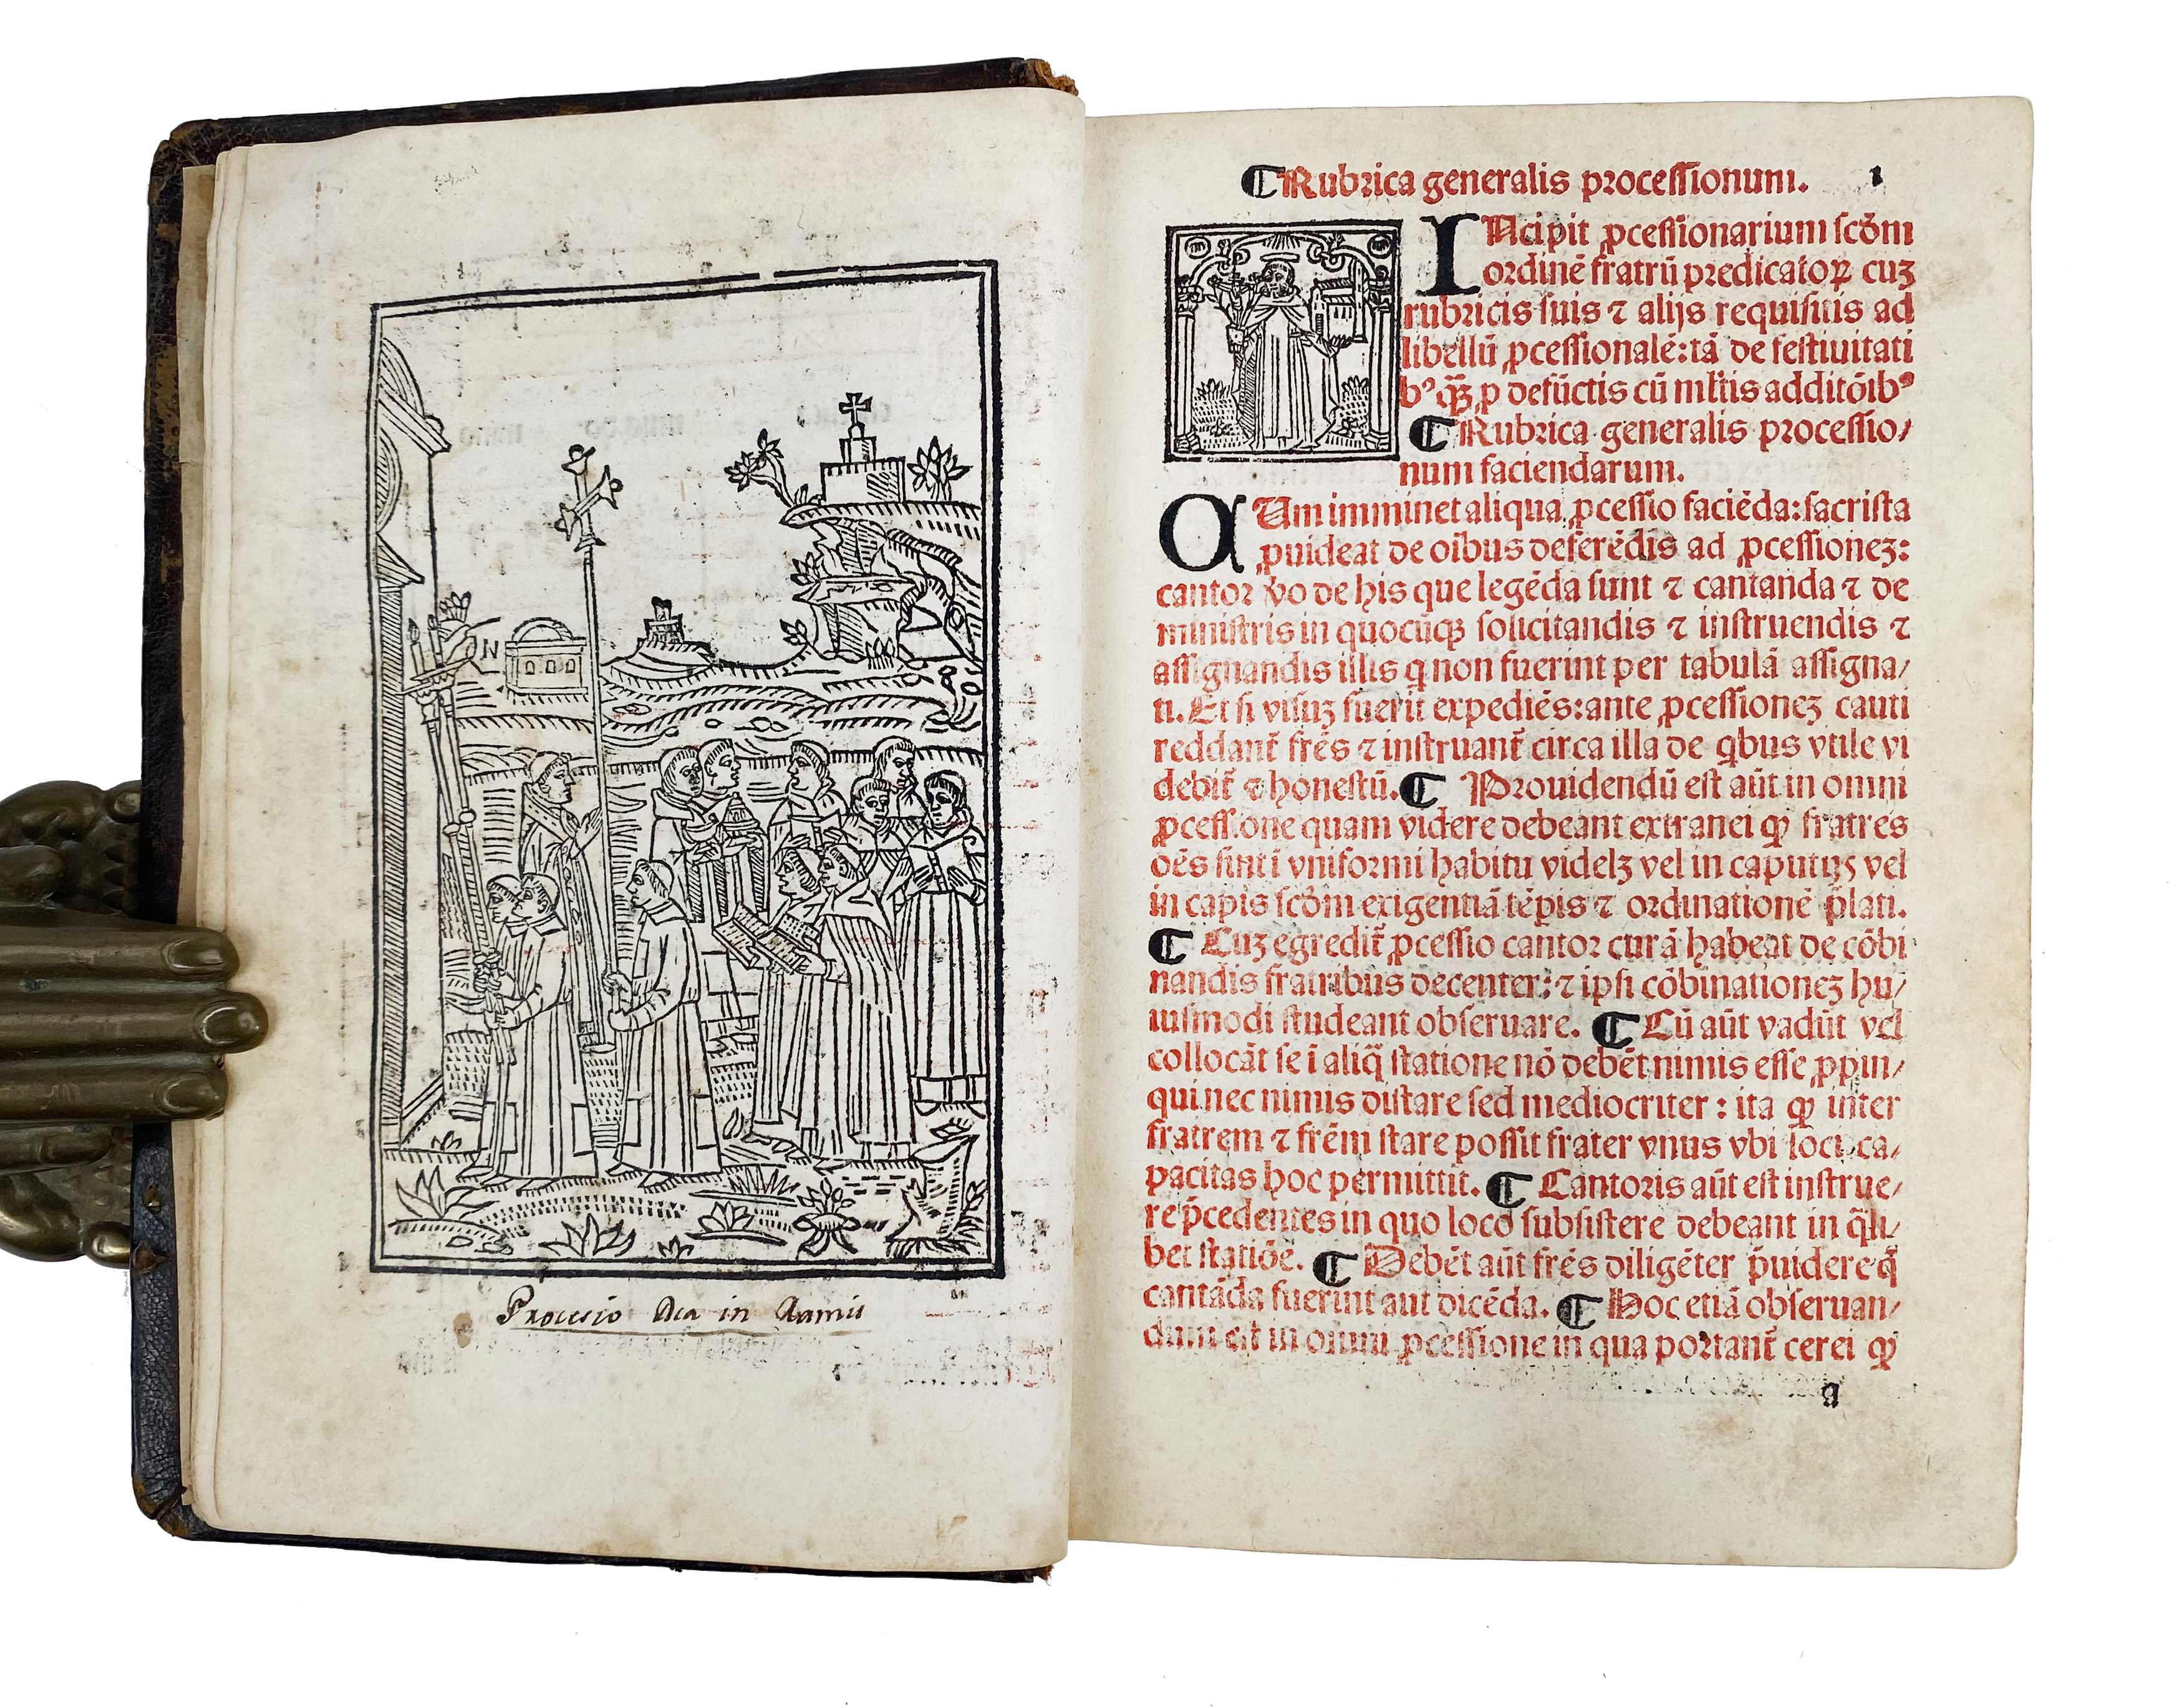 N
Procesio in Ramis
¶Rubrica generalis processionum. 1
INcipit ꝓcessionarium scḋm
ordinē fratrū predicatoꝝ cuʒ
rubricis suis ⁊ alijs requisitis ad
libellū ꝓcessionalē: tā de festiuitati
bꝰ qꝫ ꝓ defūctis cū mltis additōibꝰ
¶ Rubrica generalis processio/
num faciendarum.
CUm imminet aliqua ꝓcessio faciēda: sacrista
ꝓuideat de oībus deferēdis ad ꝓcessioneʒ:
cantor ṽo de his que legēda sunt ⁊ cantanda ⁊ de
ministris in quocūqꝫ solicitandis ⁊ instruendis ⁊
assignandis illis q̇ non fuerint per tabulā assigna/
ti. Et si visuʒ fuerit expediēs: ante ꝓcessioneʒ cauti
reddant̄ frēs ⁊ instruant̄ circa illa de qbus vtile vi
debit̄ ⁊ honestū. ¶ Prouidendū est aūt in omni
ꝓcessione quam videre debeant extranei ꝙ fratres
oēs sint ī vniformi habitu videlʒ vel in caputijs vel
in capis scḋm exigentiā tēpis ⁊ ordinationē p̄lati.
¶ Cuʒ egredit̄ ꝓcessio cantor curā habeat de cōbi
nandis fratribus decenter: ⁊ ipsi cōbinationeʒ hu/
iusmodi studeant obseruare. ¶ Cū aūt vadūt vel
collocāt se ī aliq̄ statione nō debēt nimis esse ꝓpin/
qui nec nimis distare sed mediocriter : ita ꝙ inter
fratrem ⁊ frēm stare possit frater vnus vbi loci ca/
pacitas hoc permittit. ¶ Cantoris aūt est instrue/
re p̄cedentes in quo loco subsistere debeant in q̄li/
bet statiōe. ¶ Debēt aūt frēs diligēter p̄uidere q̄
cantāda fuerint aut dicēda. ¶ Hoc etiā obseruan/
dum est in omni ꝓcessione in qua portant̄ cerei ꝙ
a